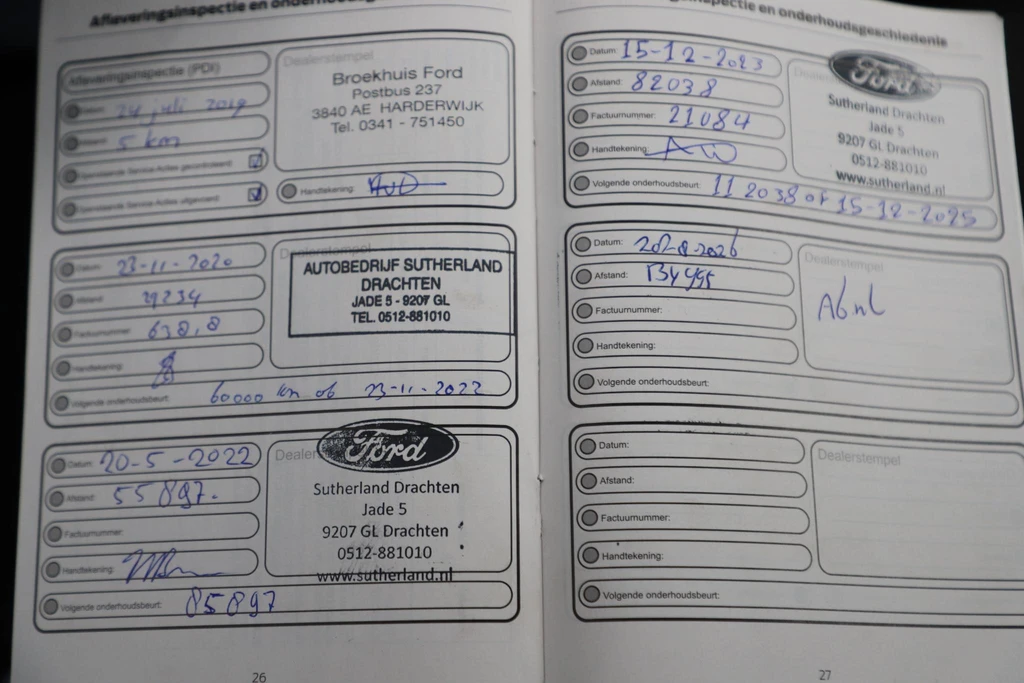 Afleveringsinspectie en
Afleveringsinspectie (PDI)
Datum: 24 juli 2019
5 km
Handtekening:
Dealerstempel
Broekhuis Ford
Postbus 237
3840 AE HARDERWIJK
Tel. 0341 - 751450
Datum: 23-11-2020
Afstand: 29234
Factuurnummer:
Handtekening:
Volgende onderhoudsbeurt: 60000 km of 23-11-2022
AUTOBEDRIJF SUTHERLAND
DRACHTEN
JADE 5 - 9207 GL
TEL. 0512-881010
Datum: 20-5-2022
Afstand: 55897.
Factuurnummer:
Handtekening:
Volgende onderhoudsbeurt: 85897
Ford
Sutherland Drachten
Jade 5
9207 GL Drachten
0512-881010
www.sutherland.nl
26
en onderhoudsgeschiedenis
Datum: 15-12-2023
Afstand: 82038
Factuurnummer: 21084
Handtekening:
Volgende onderhoudsbeurt: 112038 of 15-12-2025
Ford
Sutherland Drachten
Jade 5
9207 GL Drachten
0512-881010
www.sutherland.nl
Datum:
Afstand:
Factuurnummer:
Handtekening:
Volgende onderhoudsbeurt:
Dealerstempel
Datum:
Afstand:
Factuurnummer:
Handtekening:
Volgende onderhoudsbeurt:
Dealerstempel
27